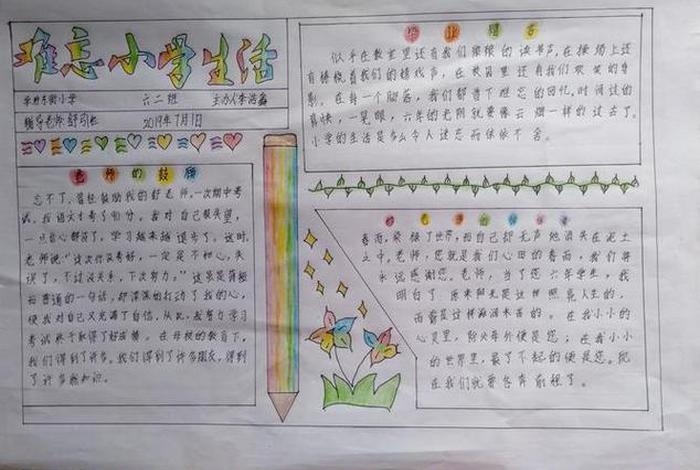 难忘小学生活
东街小学 六二班 主办人李浩淼
辅导老师舒司仕 2019年7月1日
老师的鼓励
忘不了、曾经鼓励我的舒老师,一次期中考
试,我语文才考了91分。我对自己很失望,
一点信心都没了,学习越来越退步了。这时,
老师说:“这次你没考好,一定是不细心,失
误了,不过没关系,下次努力。”这虽是简短
而普通的一句话,却深深的打动了我的心,
使我对自己又充满了自信,从此,我努力学习
考试终于取得了好成绩。在母校的教育下,
我们得到了许多。我们得到了许多朋友,得到
了许多知识。
毕业留言
似乎在教室里还有我们琅琅的读书声,在操场上还
有播放着我们的嬉戏声,在校园里还有我们欢笑的身
影,在每一个脚落,我们都留下难忘的回忆,时间过的
真快,一晃眼,六年的光阴就要像云烟一样的过去了。
小学的生活是多么令人迷恋而依依不舍。
春雨,染绿了世界,而自己却无声地消失在泥土
之中,老师,您就是我们心田的春雨,我们将
永远感谢您。老师,当了您六年学生,我
明白了,原来阳光是这样照亮人生的,
雨露是这样滋润禾苗的。在我小小的
心灵里,除父母外便是您;在我小小
的世界里,最了不起的便是您。现
在我们就要各奔前程了。